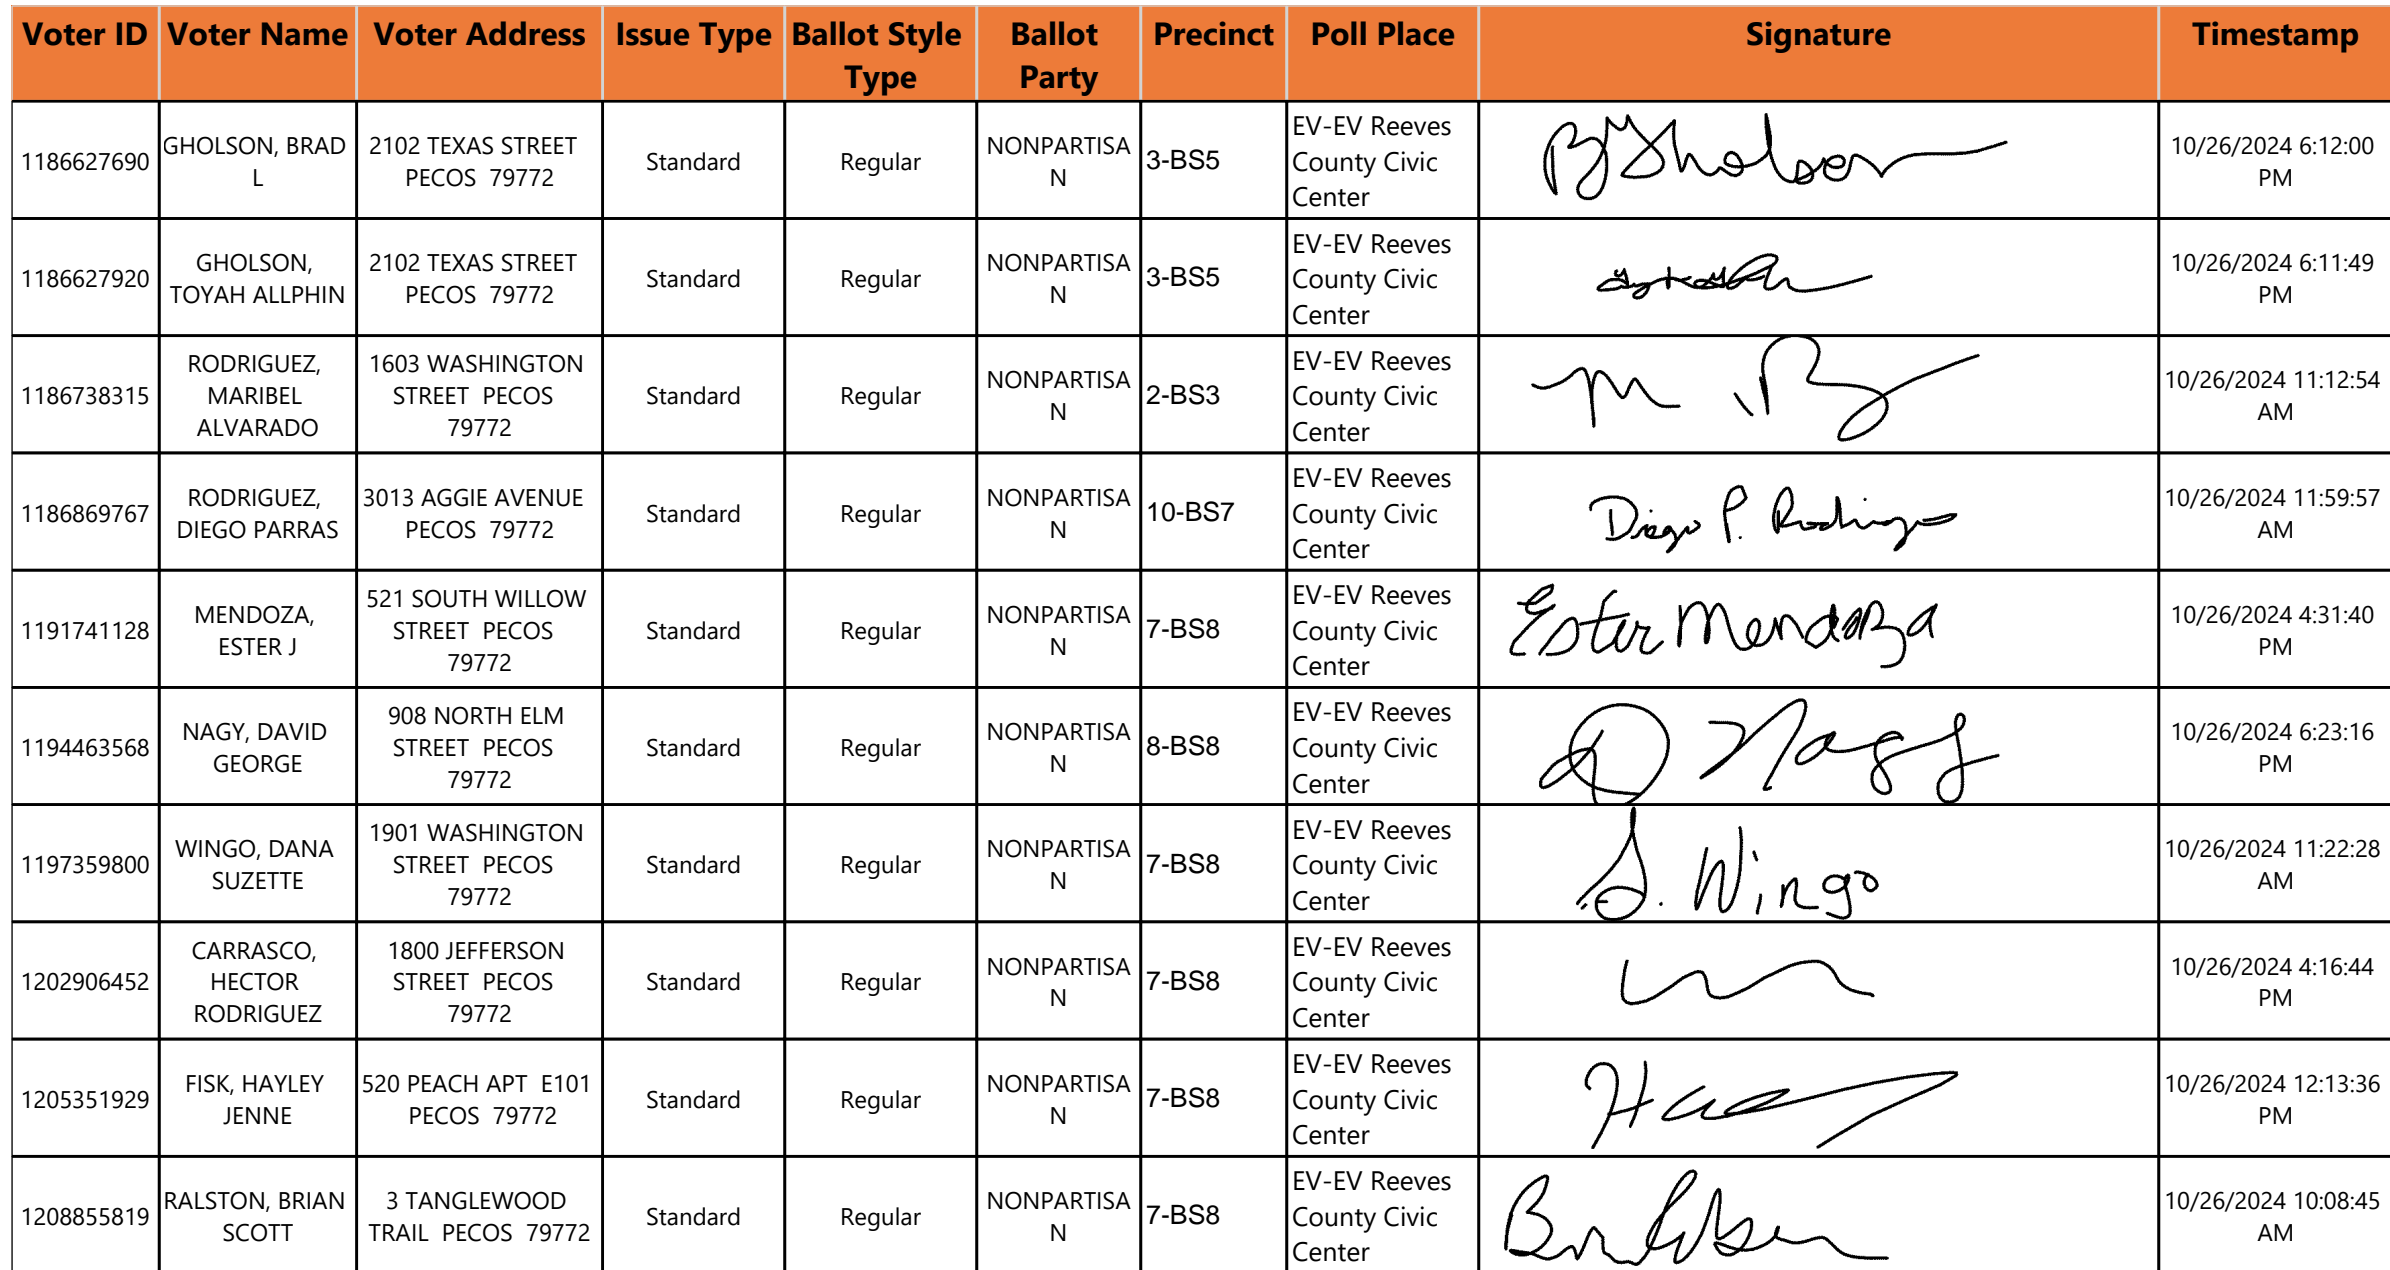 Voter ID Voter Name Voter Address Issue Type Ballot Style Type Ballot Party Precinct Poll Place Signature Timestamp
1186627690 GHOLSON, BRAD L 2102 TEXAS STREET PECOS 79772 Standard Regular NONPARTISAN 3-BS5 EV-EV Reeves County Civic Center B Gholson 10/26/2024 6:12:00 PM
1186627920 GHOLSON, TOYAH ALLPHIN 2102 TEXAS STREET PECOS 79772 Standard Regular NONPARTISAN 3-BS5 EV-EV Reeves County Civic Center 10/26/2024 6:11:49 PM
1186738315 RODRIGUEZ, MARIBEL ALVARADO 1603 WASHINGTON STREET PECOS 79772 Standard Regular NONPARTISAN 2-BS3 EV-EV Reeves County Civic Center 10/26/2024 11:12:54 AM
1186869767 RODRIGUEZ, DIEGO PARRAS 3013 AGGIE AVENUE PECOS 79772 Standard Regular NONPARTISAN 10-BS7 EV-EV Reeves County Civic Center Diego P. Rodriguez 10/26/2024 11:59:57 AM
1191741128 MENDOZA, ESTER J 521 SOUTH WILLOW STREET PECOS 79772 Standard Regular NONPARTISAN 7-BS8 EV-EV Reeves County Civic Center Ester Mendoza 10/26/2024 4:31:40 PM
1194463568 NAGY, DAVID GEORGE 908 NORTH ELM STREET PECOS 79772 Standard Regular NONPARTISAN 8-BS8 EV-EV Reeves County Civic Center D Nagy 10/26/2024 6:23:16 PM
1197359800 WINGO, DANA SUZETTE 1901 WASHINGTON STREET PECOS 79772 Standard Regular NONPARTISAN 7-BS8 EV-EV Reeves County Civic Center S. Wingo 10/26/2024 11:22:28 AM
1202906452 CARRASCO, HECTOR RODRIGUEZ 1800 JEFFERSON STREET PECOS 79772 Standard Regular NONPARTISAN 7-BS8 EV-EV Reeves County Civic Center 10/26/2024 4:16:44 PM
1205351929 FISK, HAYLEY JENNE 520 PEACH APT E101 PECOS 79772 Standard Regular NONPARTISAN 7-BS8 EV-EV Reeves County Civic Center 10/26/2024 12:13:36 PM
1208855819 RALSTON, BRIAN SCOTT 3 TANGLEWOOD TRAIL PECOS 79772 Standard Regular NONPARTISAN 7-BS8 EV-EV Reeves County Civic Center 10/26/2024 10:08:45 AM